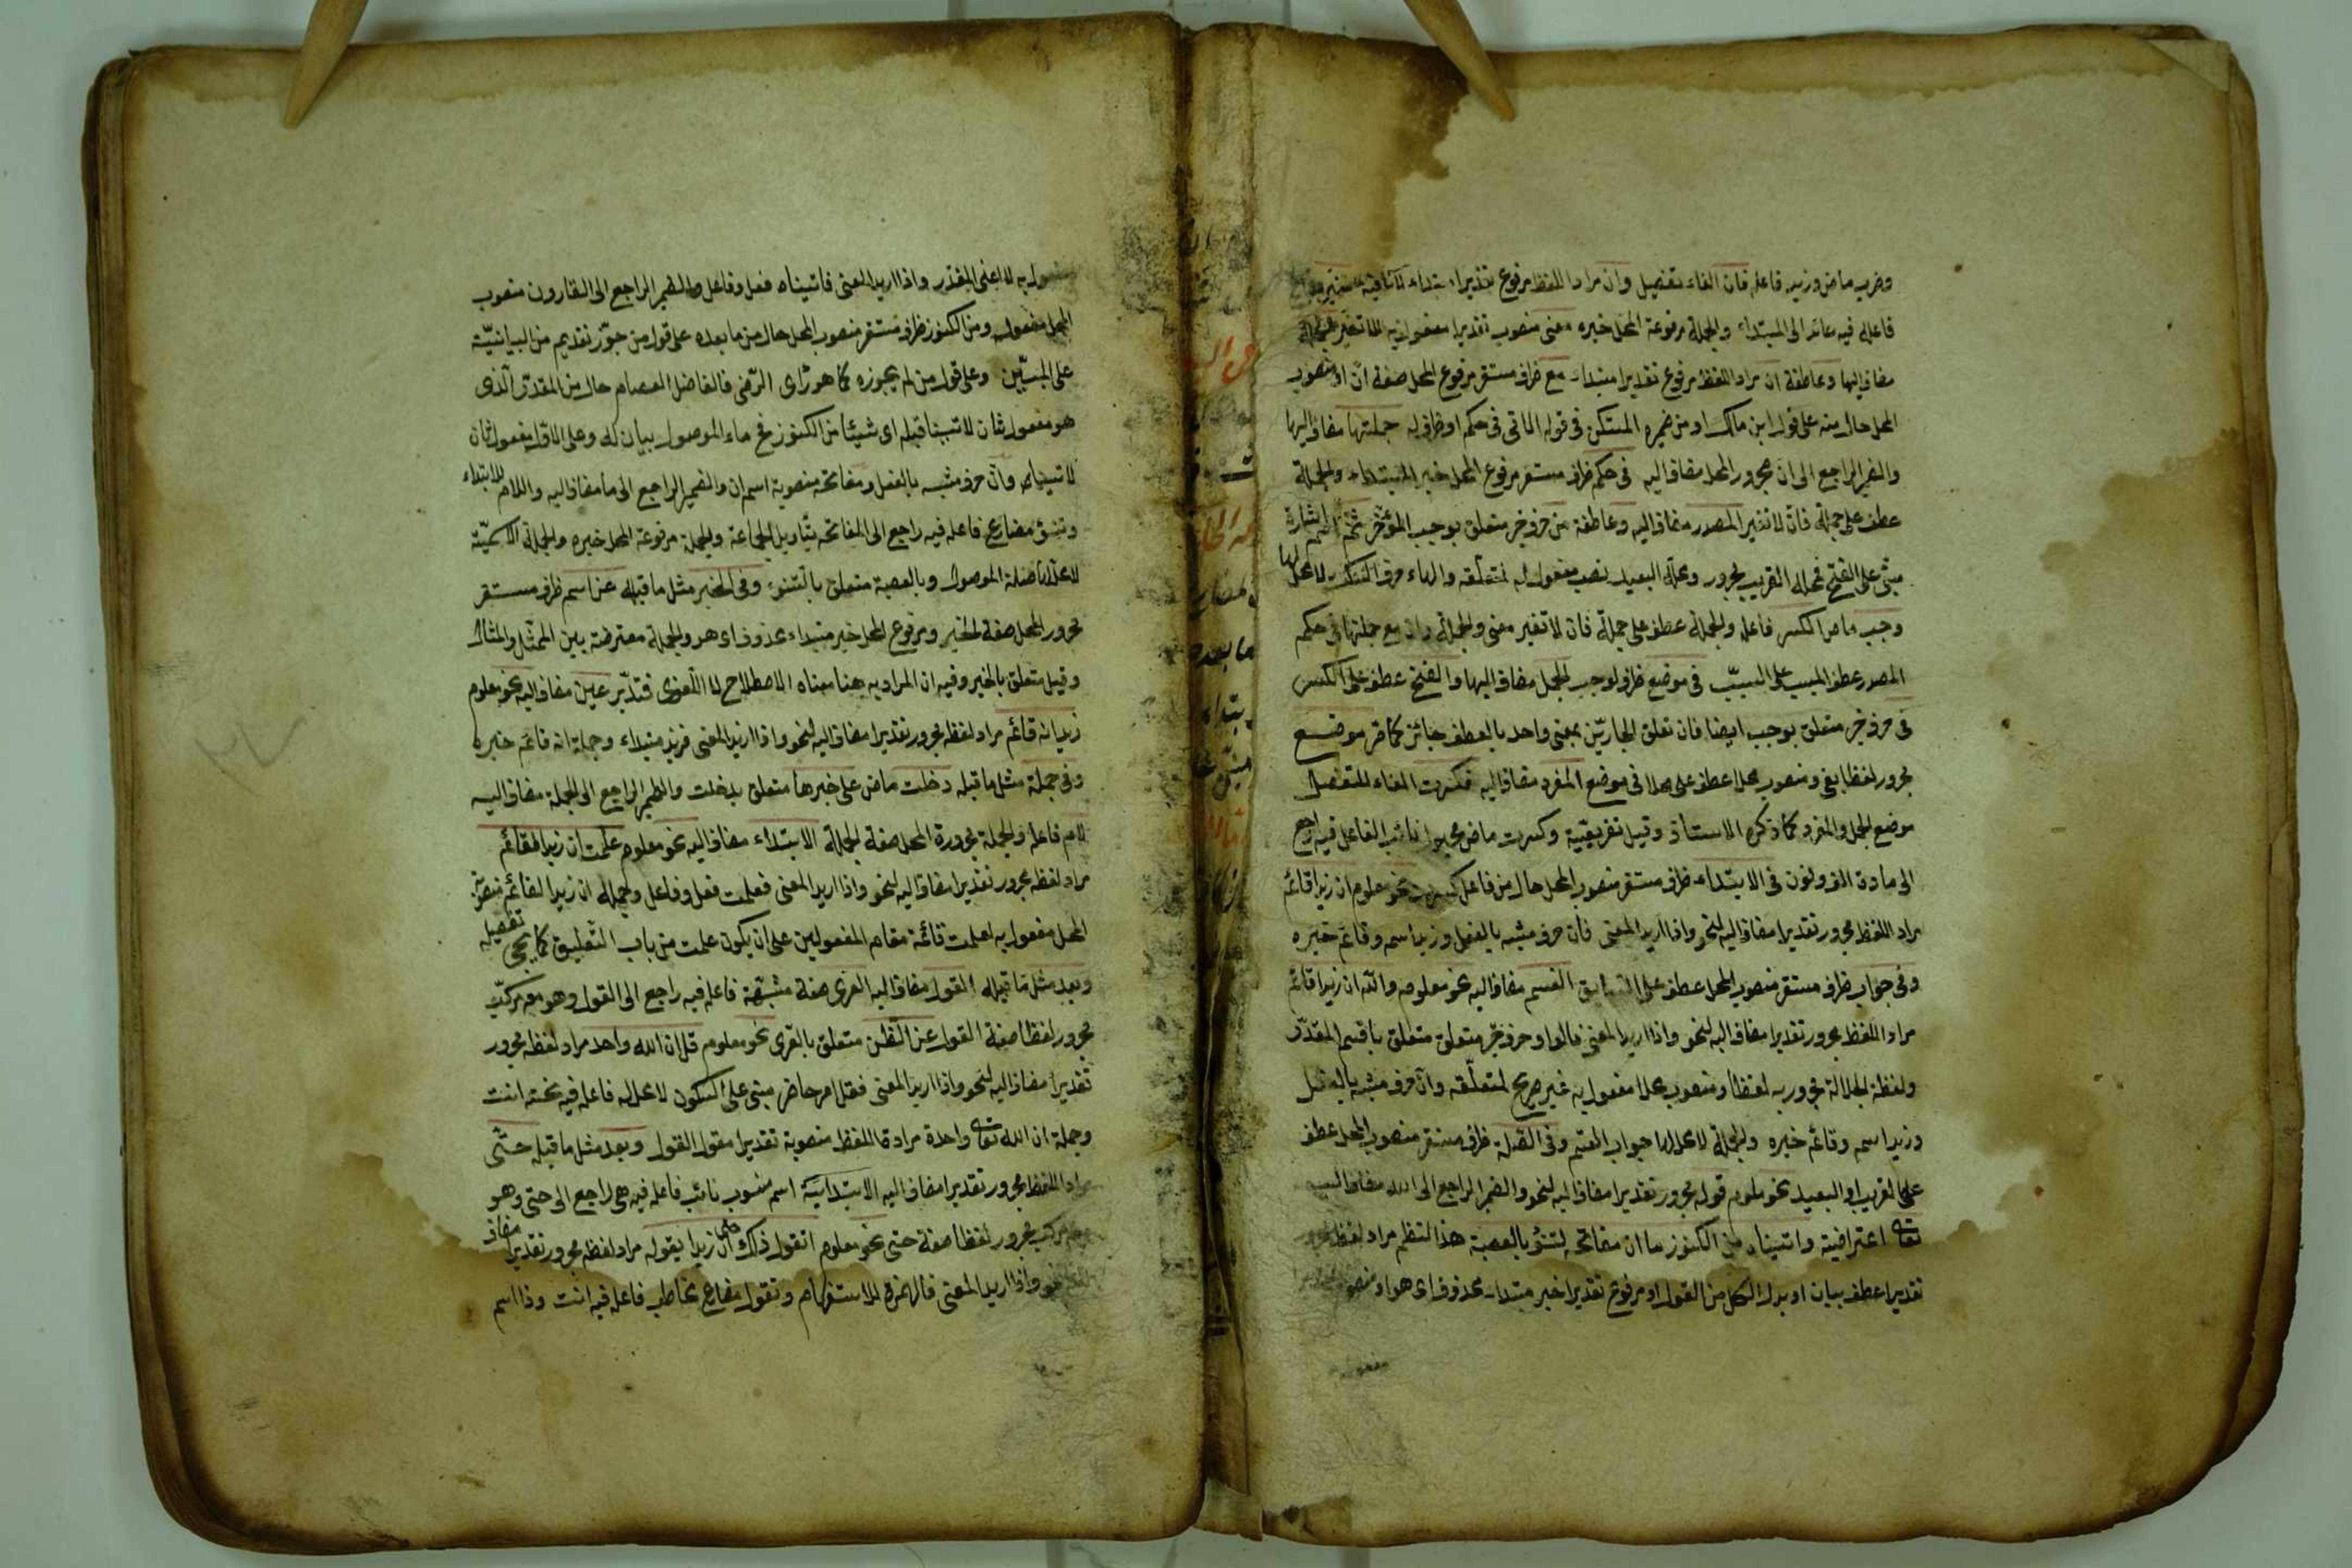 وضرب ماض وزيد فاعله فان الفاء تفصيل وان مراد اللفظ مرفوع تقديرا مبتداء
فاعله فيه عائد الى المبتداء والجملة مرفوعة المحل خبره معنى منصوب تقديرا مفعول به
مضاف اليها وعاطفة ان مراد اللفظ مرفوع تقديرا مبتداء مع ظرف مستقر مرفوع المحل صفة ان او منصوب
المحل حال منه على قول ابن مالك او من ضميره المستكن في قوله الاتى فى حكم او ظرف له جملتها مضاف اليها
والضمير الراجع الى ان مجرور المحل مضاف اليه فى حكم ظرف مستقر مرفوع المحل خبر المبتداء والجملة
عطف على جملة فان لا تغير المصدر مضاف اليه وعاطفة من حرف جر متعلق بوجب المؤخر ثم اسم اشارة
مبنى على الفتح فمحله القريب مجرور ومحله البعيد نصب مفعول له لمتعلقه والهاء حرف السكت لا محل لها
وجب ماض الكسر فاعله والجملة عطف على جملة فان لا تغير معنى والجملة وان مع جملتها فى حكم
المصدر عطف المسبب على السبب فى موضع ظرف لوجب الجمل مضاف اليها والفتح عطف على الكسر
فى حرف جر متعلق بوجب ايضا فان تعلق الجارين بمعنى واحد بالعطف جائز كما مر موضع
مجرور لفظا بفى ومنصوب محلا عطف على محل فى موضع المفرد مضاف اليه فكسرت الفاء للتفصيل
موضع الجمل والمفرد كما ذكره الاستاذ وقيل تفريعية وكسرت ماض مجهول نائب الفاعل فيه راجع
الى مادة الالف ونون فى الابتداء ظرف مستقر منصوب المحل حال من فاعل كسرت نحو معلوم ان زيدا قائم
مراد اللفظ مجرور تقديرا مضاف اليه لنحو واذا اريد المعنى فان حرف مشبه بالفعل وزيدا اسمه وقائم خبره
وفى جواب ظرف مستقر منصوب المحل عطف على السابق القسم مضاف اليه نحو معلوم والله ان زيدا قائم
مراد اللفظ مجرور تقديرا مضاف اليه لنحو واذا اريد المعنى فالواو حرف جر متعلق متعلق باقسم المقدر
ولفظة الجلالة مجرور به لفظا ومنصوب محلا مفعول به غير صريح لمتعلقه وان حرف مشبه بالفعل
وزيدا اسمه وقائم خبره والجملة لا محل لها جواب القسم وفى الصلة ظرف مستقر منصوب المحل عطف
على القريب او البعيد نحو معلوم قوله مجرور تقديرا مضاف اليه لنحو والضمير الراجع الى الله مضاف اليه
تعالى اعتراضية واتيناه من الكنوز ما ان مفاتحه لتنؤ بالعصبة هذا النظم مراد لفظه
تقديرا عطف بيان او بدل الكل من القول او مرفوع تقديرا خبر مبتداء محذوف اى هو او منصوب
مفعول
مفعول به لاعنى المقدر واذا اريد المعنى فاتيناه فعل وفاعل والضمير الراجع الى القارون منصوب
المحل مفعوله ومن الكنوز ظرف مستقر منصوب المحل حال من ما بعده على قول من جوز تقديم من البيانية
على المبين وعلى قول من لم يجوزه كما هو رأى الرضى فالفاضل العصام حال من المقدر الذى
هو مفعول ثان لاتينا قبله اى شيئا من الكنوز فح ماء الموصول بيان له وعلى الاول مفعول ثان
لاتيناه وان حرف مشبه بالفعل ومفاتحه منصوبة اسم ان والضمير الراجع الى ما مضاف اليه واللام للابتداء
وتنؤ مضارع فاعله فيه راجع الى المفاتحه بتأويل الجماعة والجملة مرفوعة المحل خبره والجملة الاسمية
لا محل لها صلة الموصول وبالعصبة متعلق بالتنوء وفى الخبر مثل ما قبله عن اسم ظرف مستقر
مجرور المحل صفة الخبر ومرفوع المحل خبر مبتداء محذوف اى هو والجملة معترضة بين الممثل والمثال
وقيل متعلق بالخبر وفيه ان المراد به هنا معناه الاصطلاحى لا اللغوى فتدبر عين مضاف اليه نحو معلوم
زيد انه قائم مراد لفظه مجرور تقديرا مضاف اليه لنحو واذا اريد المعنى فزيد مبتداء وجملة انه قائم خبره
وفى جملة مثل ما قبله دخلت ماض على خبرها متعلق بدخلت والضمير الراجع الى الجملة مضاف اليه
لام فاعله والجملة مجرورة المحل صفة لجملة الابتداء مضاف اليه نحو معلوم علمت ان زيدا لقائم
مراد لفظه مجرور تقديرا مضاف اليه لنحو واذا اريد المعنى فعلمت فعل وفاعل وجملة ان زيدا لقائم منصوبة
المحل مفعول به لعلمت قائمة مقام المفعولين على ان يكون علمت من باب التعليق كما يجئ تفصيله
وبعد مثل ما قبله القول مضاف اليه العرى صفة مشبهة فاعله فيه راجع الى القول وهو معه مركب
مجرور لفظا صفة القول عن الظن متعلق بالعرى نحو معلوم قل ان الله واحد مراد لفظه مجرور
تقديرا مضاف اليه لنحو واذا اريد المعنى فقل امر حاضر مبنى على السكون لا محل له فاعله فيه تحته انت
وجملة ان الله تعالى واحدة مراد اللفظ منصوبة تقديرا مقول القول وبعد مثل ما قبله حتى
مراد اللفظ مجرور تقديرا مضاف اليه الابتدائية اسم منسوب نائب فاعله فيه هى راجع الى حتى وهو
معه مركب مجرور لفظا صفة حتى نحو معلوم اتقول ذلك حتى ان زيدا يقوله مراد لفظه مجرور تقديرا مضاف
لنحو واذا اريد المعنى فالهمزة للاستفهام وتقول مضارع مخاطب فاعله فيه انت وذا اسم